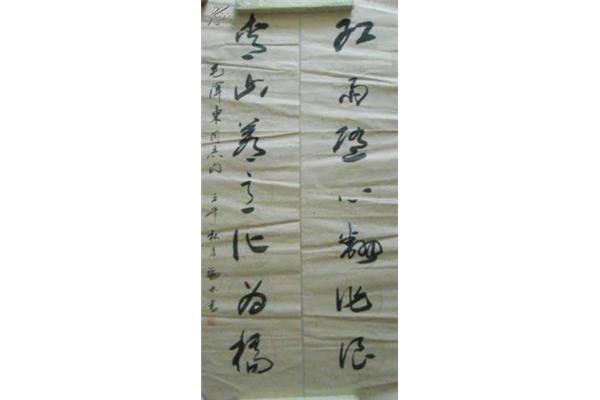 红雨随心翻作浪
青山着意化为桥
毛澤東同志句 壬午 秋月